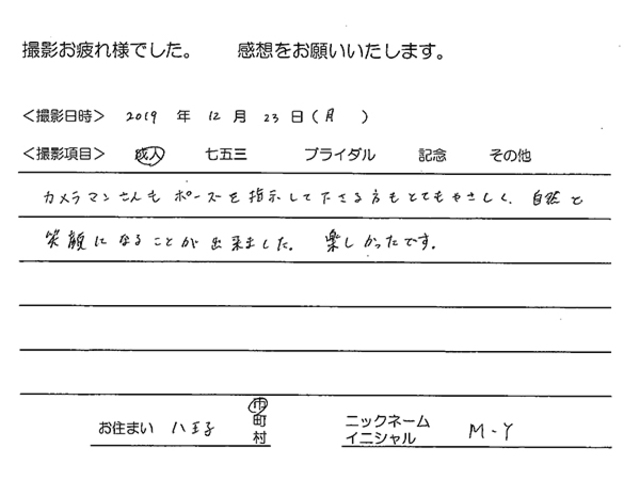 撮影お疲れ様でした。 感想をお願いいたします。
＜撮影日時＞ 2019 年 12 月 23 日（月 ）
＜撮影項目＞ 成人 七五三 ブライダル 記念 その他
カメラマンさんも ポーズを指示して下さる方もとてもやさしく、自然と
笑顔になることが出来ました。 楽しかったです。
お住まい 八王子 市
町
村
ニックネーム
イニシャル M-Y